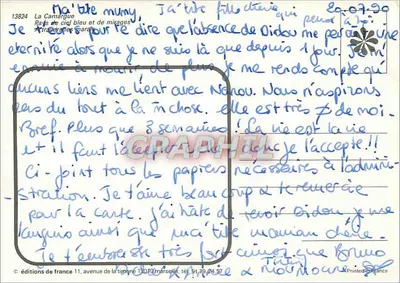 Ma 'tite mumy J'ai 'tite fille chérie qui pense à toi 20-07-90
13824 La Camargue
Pays de ciel bleu et de mirages
Je t'écris pour te dire que l'absence de Didou me paraît une
éternité alors que je ne suis là que depuis 1 jour. Je m'
ennuie à mourir de plus je me rends compte qu'
aucuns liens me lient avec Nanou. Nous n'aspirons
pas du tout à la m chose. elle est très ≠ de moi.
Bref. Plus que 3 semaines! La vie est la vie
et il faut l'accepter donc je l'accepte!!
Ci-joint tous les papiers nécessaires à l'admini-
stration. Je t'aime beaucoup et te remercie
pour la carte. j'ai hâte de revoir Didou je me
languis ainsi que ma 'tite maman chérie.
Je t'embrasse très fort ainsi que Bruno
© éditions de france 11, avenue de la 13013 marseille, tél. 91.
PHIL